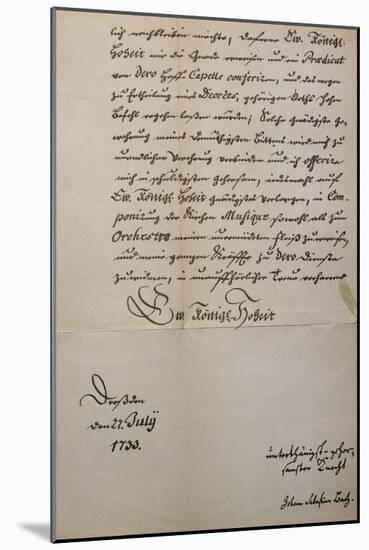 lich nachbleiben möchte, dafern Ew. Königl.
Hoheit mir die Gnade erweisen und ein Prædicat
von Dero Hoff-Capelle conferiren, und deswegen
zu Ertheilung eines Decrets, gehörigen Orths hohen
Befehl ergehen laßen würden; Solche gnädigste Ge-
wehrung meines demüthigsten Bittens wird mich zu
unendlicher Verehrung verbinden und ich offerire
mich in schuldigsten Gehorsam, iedesmahl auf
Ew. Königl. Hoheit gnädigstes Verlangen, in Com-
ponirung der Kirchen Musique sowohl als zum
Orchestre meinen unermüdeten Fleiß zu erweisen,
und meine gantzen Kräffte zu Dero Dienste
zu widmen, in unauffhörlicher Treue verharrend
Ew. Königl. Hoheit
Dreßden
den 27. July
1733.
unterthänigst-gehor-
samster Knecht
Johann Sebastian Bach.